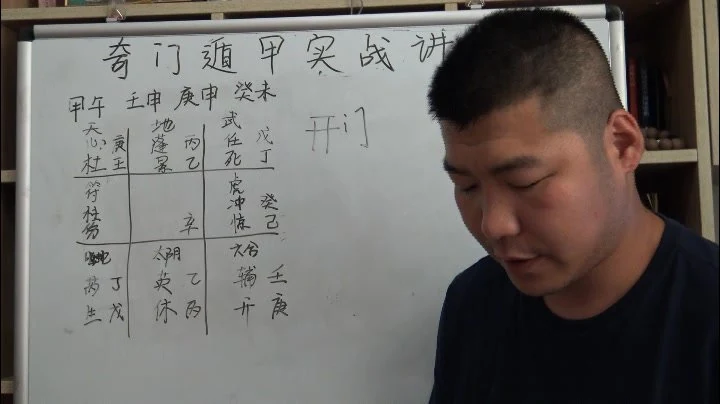 奇门遁甲实战讲
甲午 壬申 庚申 癸未
开门
天 地 武
心 庚 蓬 丙 任 戊
杜 壬 景 乙 死 丁
符 虎
柱 冲 癸
伤 辛 惊 己
太阴 六合
芮 丁 英 乙 辅 壬
生 戊 休 丙 开 庚